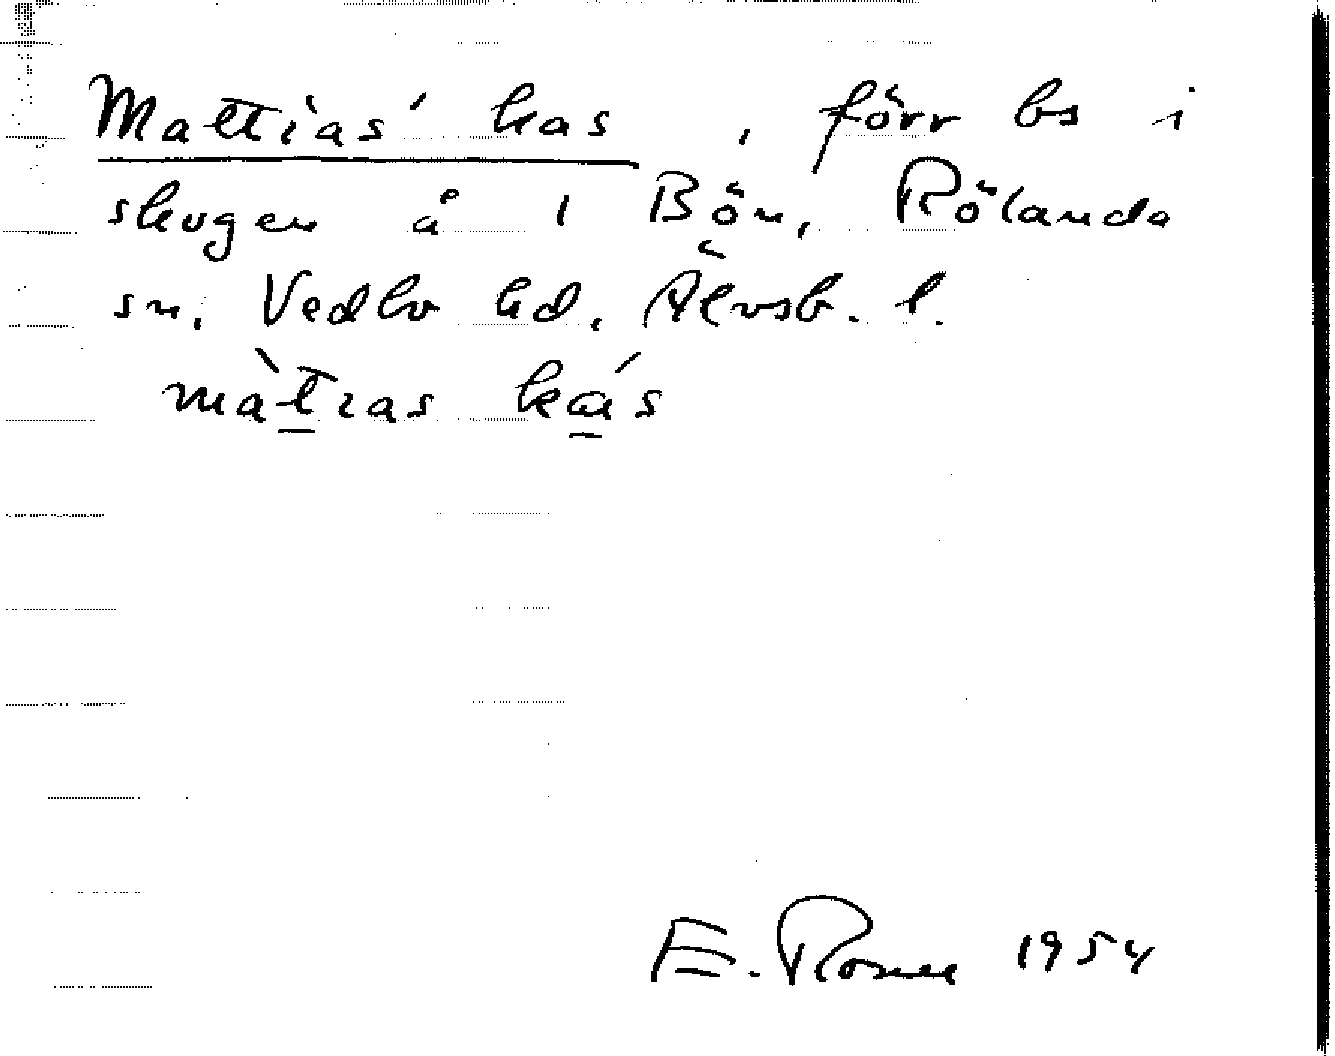 Mattias' kas, förr bs i
skogen å 1 Bön, Rölanda
sn, Vedbo hd, Älvsb. l.
màtias kás
E. Rosell 1954